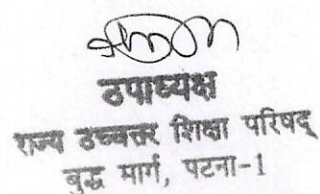 उपाध्यक्ष
राज्य उच्चत्तर शिक्षा परिषद्
बुद्ध मार्ग, पटना-1